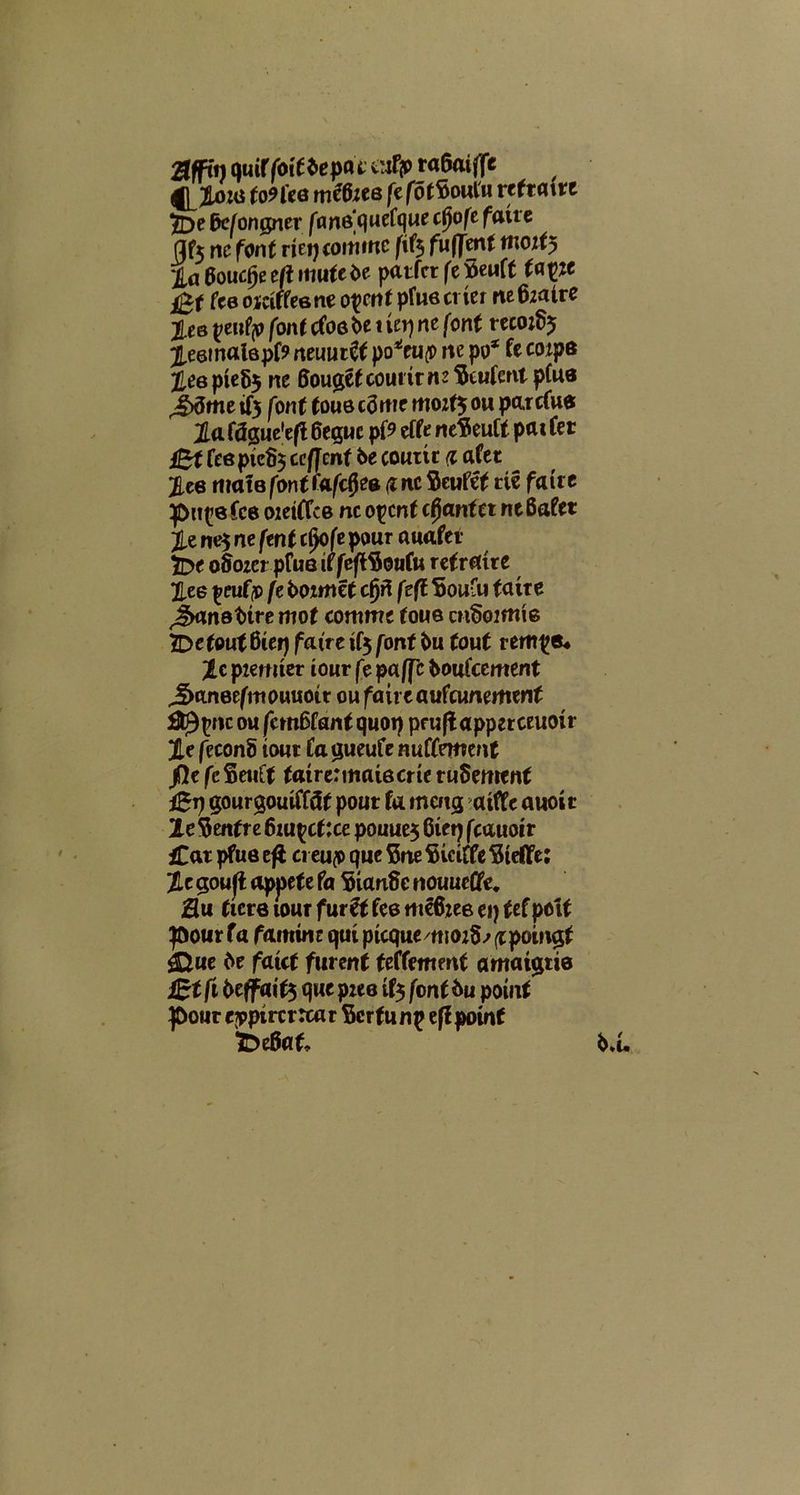 Affin quil soit de par celuy rabaisse
¶ Lors to9 les mēbres se sōt voulu retraire
De besongner sans quelque chose faire
Ilz ne font rien comme silz fussent mortz
La bouche est mute de parler se veult tayre
Et les oreilles ne oyent plus crier ne braire
Les yeulx sont clos de rien ne sont recordz
Les mais pl9 neuurēt po² eux ne po² le corps
Les piedz ne bougēt courir nz veulent plus
Sōme ilz sont tous cōme mortz ou parclus
La lāgue est begue pl9 elle ne veult parler
Et les piedz cessent de courir & aler
Les mais sont lasches & ne veulēt riē faire
Puys les oreilles ne oyent chanter ne baler
Le nez ne sent chose pour aualer
De odorer plus il sest voulu retraire
Les yeulx se dormēt chūn sest voulu taire
Sans dire mot comme tous endormis
De tout bien faire ilz sont du tout remys.
Le premier iour se passe doulcement
Sans esmouuoir ou faire aulcunement
Myne ou semblant quon peust apperceuoir
Le second iour la gueule nullement
Ne se veult taire: mais crie rudement
En gourgouillāt pour sa meng aille auoir
Le ventre bruyct: ce pouuez bien scauoir
Car plus est creux que vne vieille vielle:
Le goust appete la viande nouuelle.
Au tiers iour furēt les mēbres en tel poīt
Pour la famine qui picque / mord / & poingt
Que de faict furent tellement amaigris
Et si deffaitz que pres ilz sont du point
Pour expirer: car vertu ny est point
Debat.
b.i.